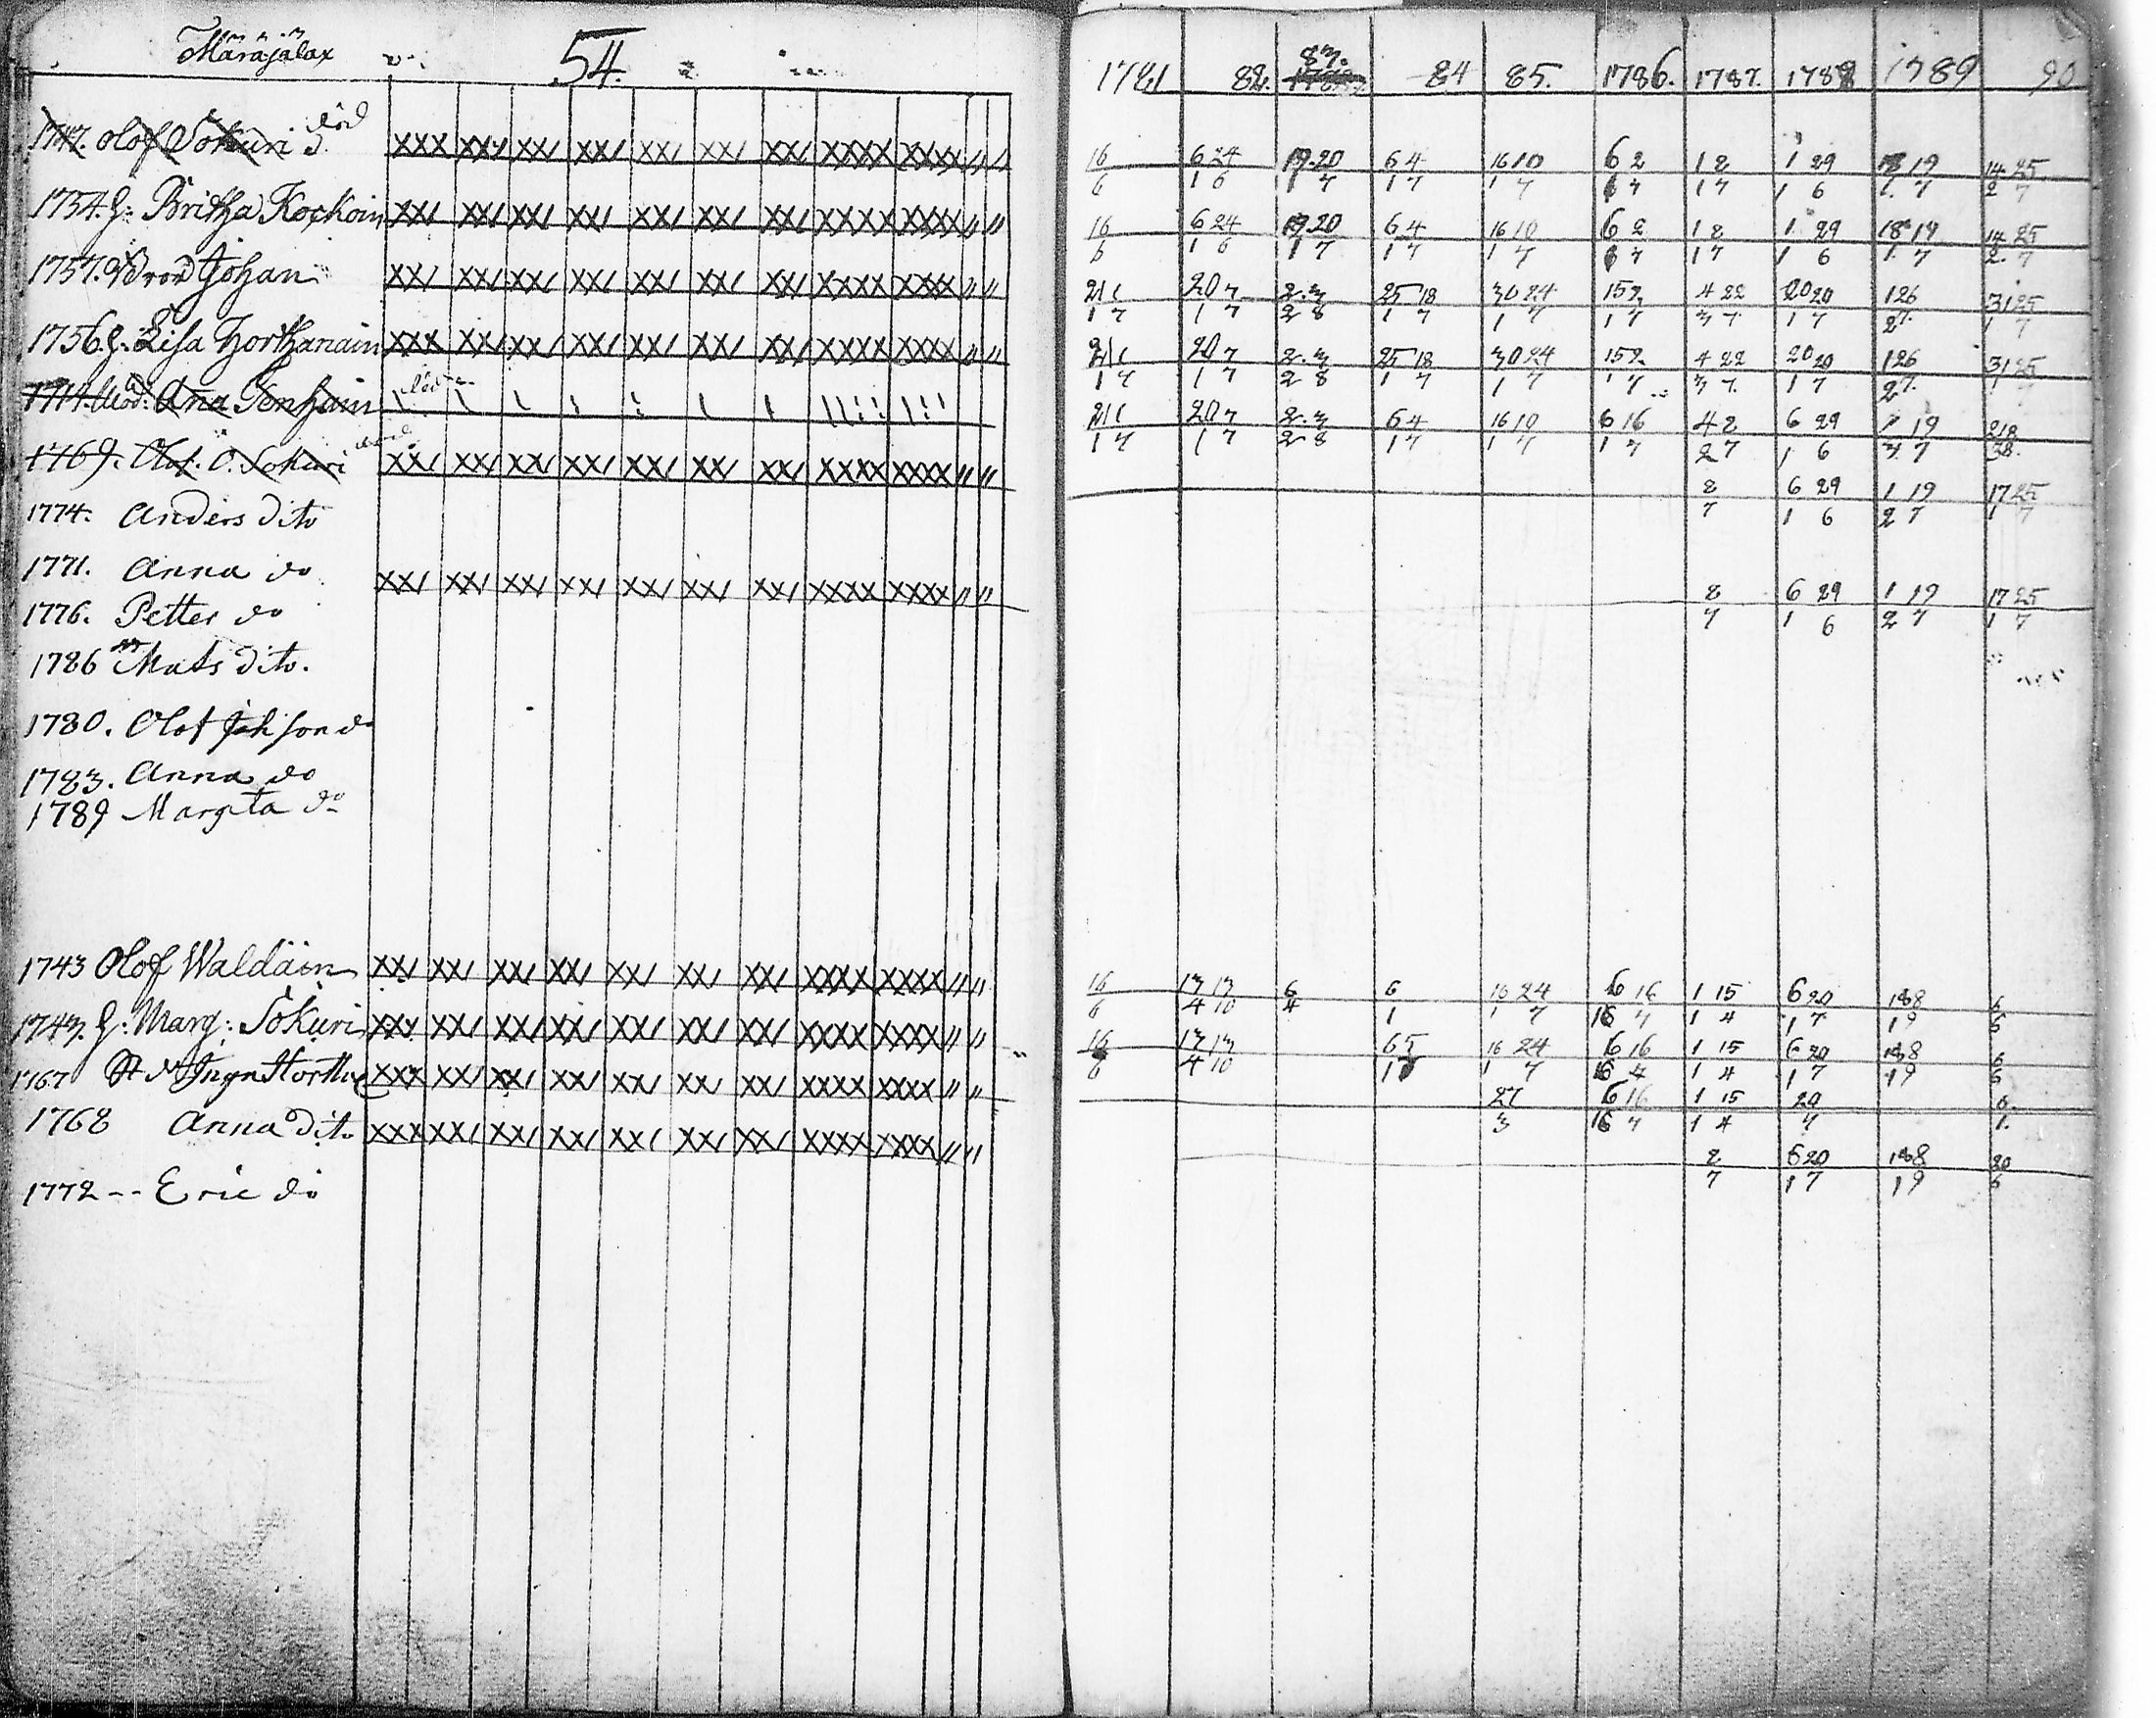 Märäjälax 54.
1747. Olof Sokuri död
1754. H: Britha Kockoin
1757. Bror Johan
1756. H: Lisa Horthanain
1714. Mod: Ana Tenhuin död
1769. Olof. O. Sokuri död
1774. Anders dito
1771. Anna do
1776. Petter do
1786 Mats dito.
1780. Olof Joh son do
1783. Anna do
1789 Margta do
1743 Olof Waldäin
1743. H: Marg: Sokuri
1767
1768 Anna dito
1772 -- Eric do
1781 82. 83. 84 85. 1786. 1787. 1788 1789 90
16/6 6 24/1 6 19.20/1 7 6 4/1 7 16 10/1 7 6 2/7 1 8/1 7 1 29/1 6 19/1 7 14 25/2 7
16/6 6 24/1 6 19.20/1 7 6 4/1 7 16 10/1 7 6 2/7 1 8/1 7 1 29/1 6 18 19/1 7 14 25/2 7
21 1/1 7 20 7/1 7 2.3/2 8 25 18/1 7 30 24/1 7 15 2/1 7 4 22/3 7 20 20/1 7 1 26/2 7 31 25/1 7
21 1/1 7 20 7/1 7 2.3/2 8 25 18/1 7 30 24/1 7 15 2/1 7 4 22/3 7 20 20/1 7 1 26/2 7 31 25/1 7
21 1/1 7 20 7/1 7 2.3/2 8 6 4/1 7 16 10/1 7 6 16/1 7 4 8/2 7 6 29/1 6 1 19/3 7
8/7 6 29/1 6 1 19/2 7 17 25/1 7
8/7 6 29/1 6 1 19/2 7 17 25/1 7
16/6 13 13/4 10 6/4 6/1 16 24/1 7 6 16/7 1 15/1 4 6 20/1 7 8/1 9 6/6
16/6 13 13/4 10 6 5/1 16 24/1 7 6 16 1 15/1 4 6 20/1 7 8/1 9 6/6
27/3 6 16/7 1 15/1 4 20/7 6./1.
8/7 6 20/1 7 8/1 9 20/6